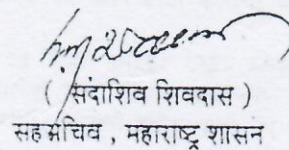 ( संदाशिव शिवदास )
सहसचिव , महाराष्ट्र शासन